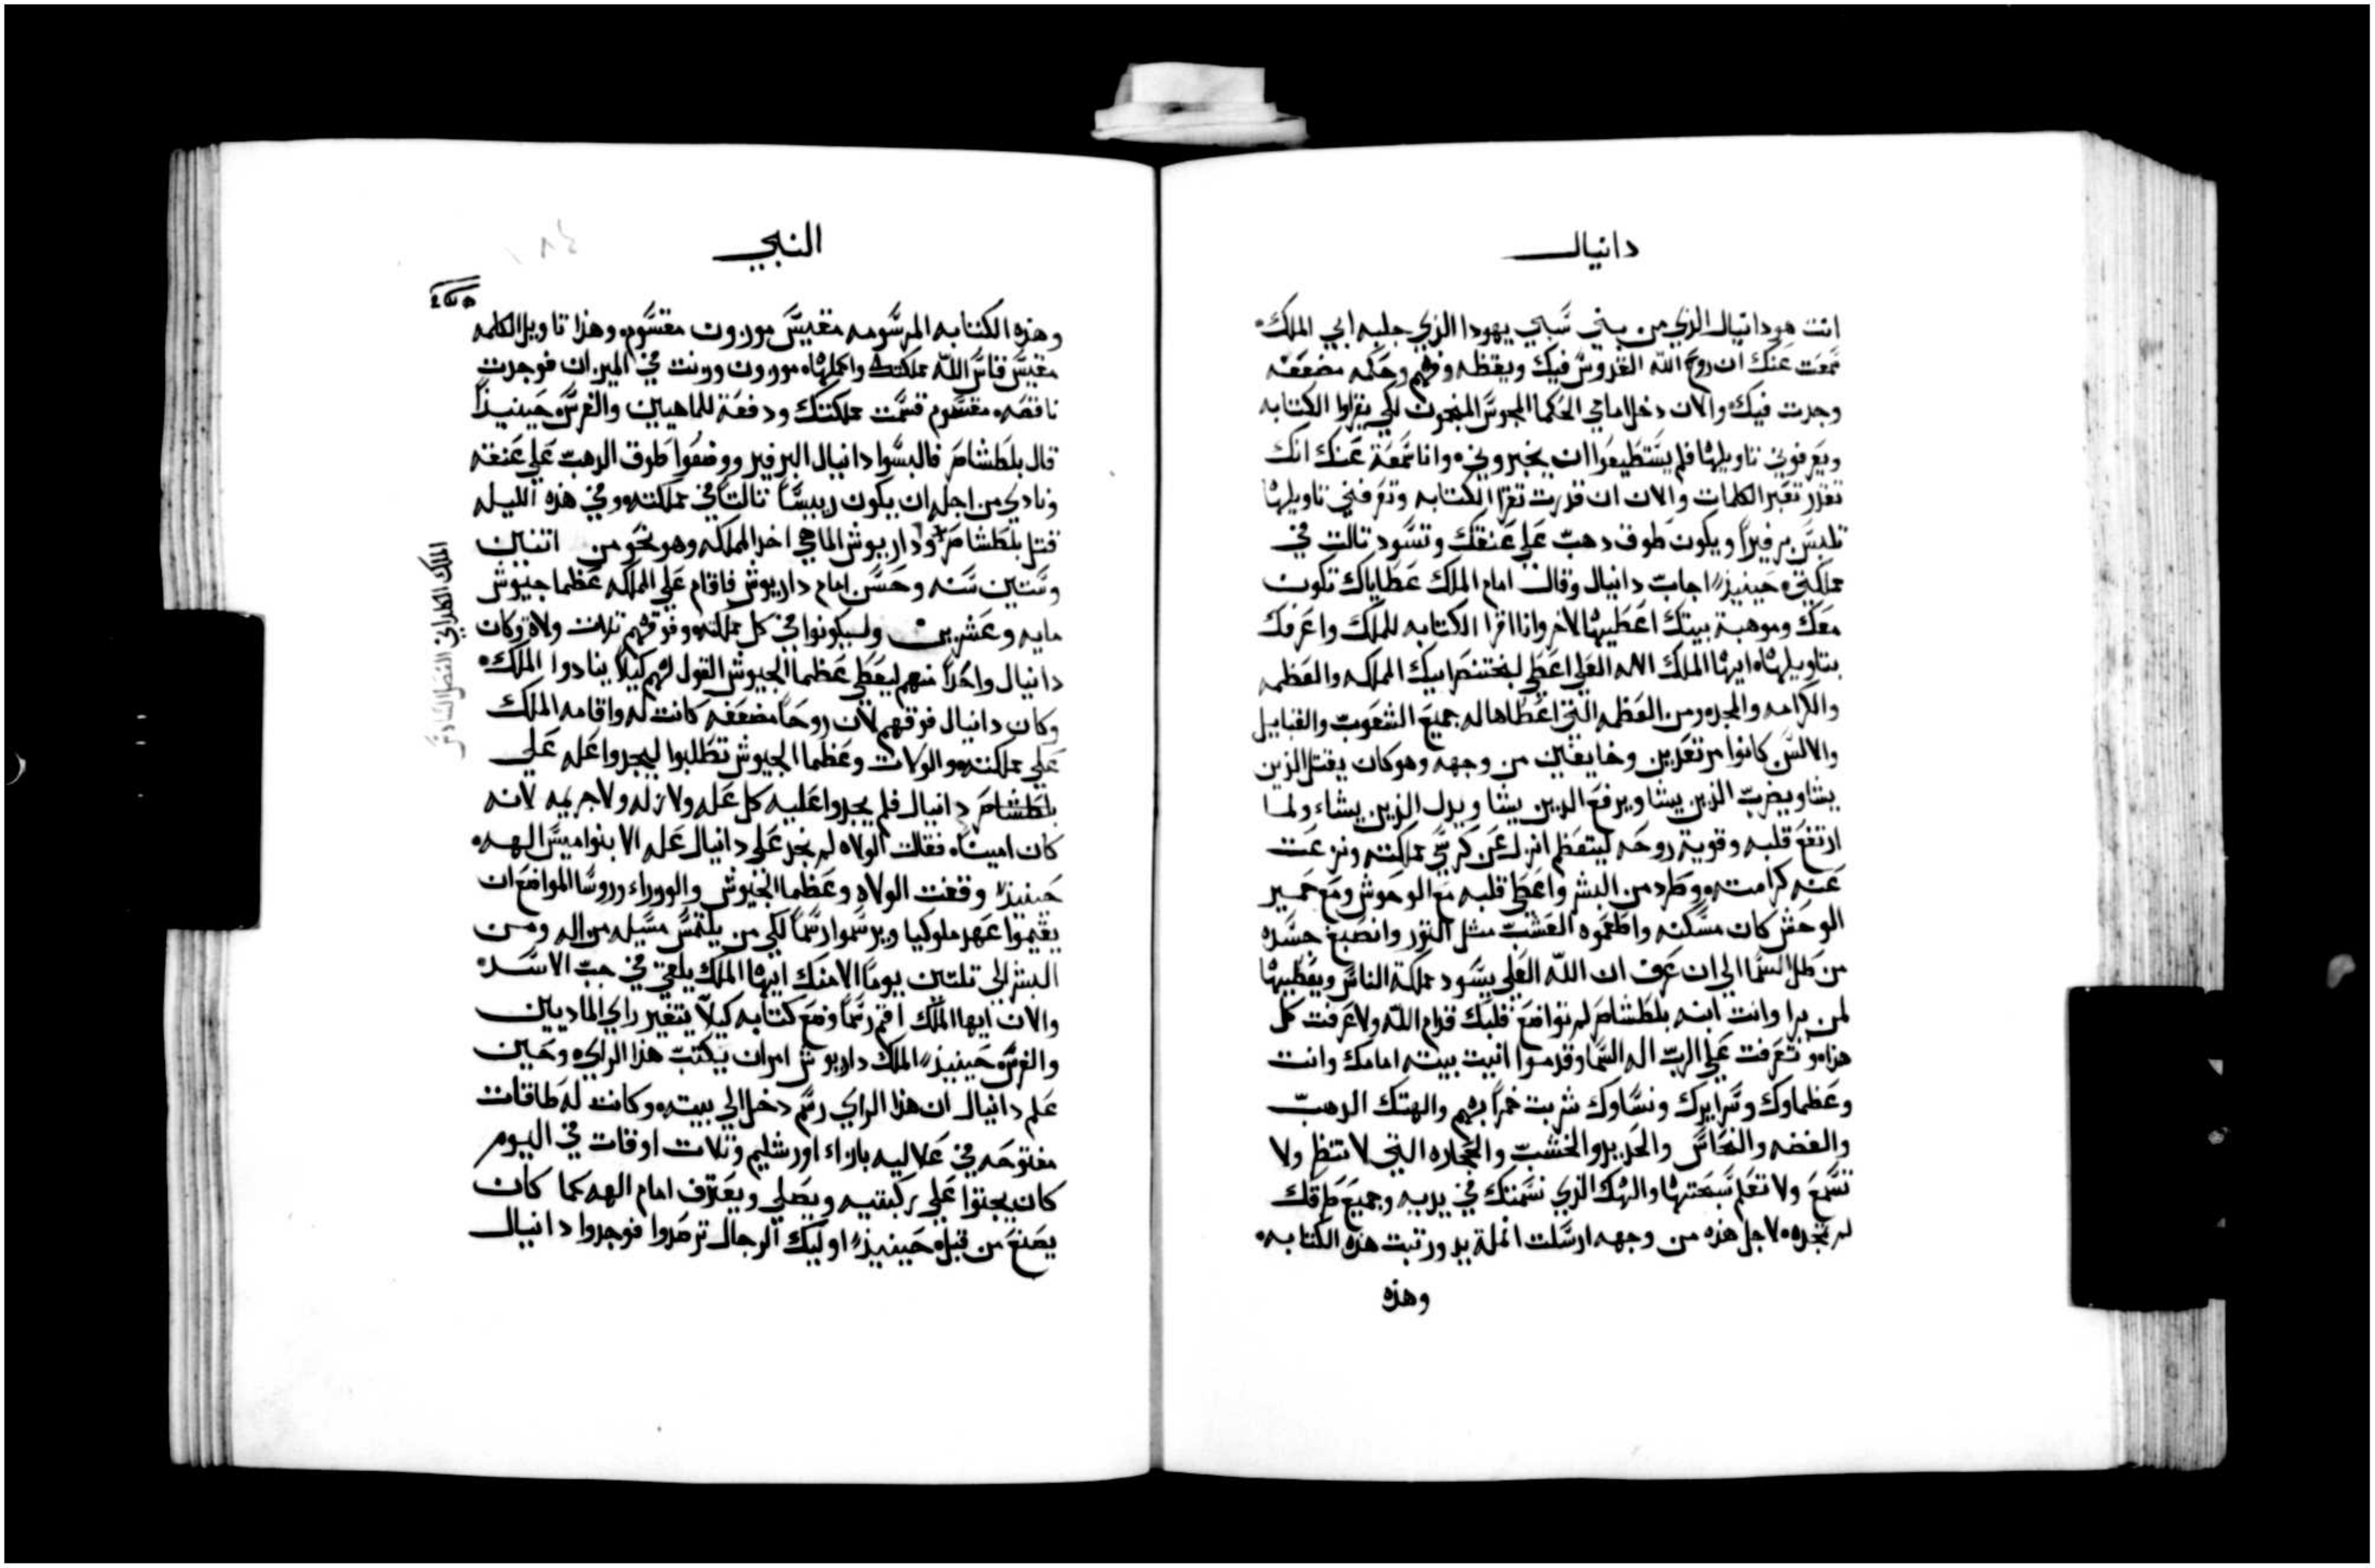 دانيال
انت هو دانيال الذي من بني سبي يهودا الذي جلبه ابي الملك
سمعت عنك ان روح الله القدوس فيك ويقظه وفهم وحكمه مضعفه
وجدت فيك والان دخل امامي الحكما المجوس المنجمون لكي يقراوا الكتابه
ويعرفوني تاويلها فلم يستطيعوا ان يخبروني وانا سمعة عنك انك
تقدر تفسر الكلمات والان ان قدرت تقرا الكتابه وتعرفني تاويلها
تلبس برفيرا ويكون طوق دهب علي عنقك وتسود تالت في
مملكتي حينيذ اجاب دانيال وقال امام الملك عطاياك تكون
معك وموهبة بيتك اعطيها لاخر وانا اقرا الكتابه للملك واعرفك
بتاويلها ايها الملك الاله العلي اعطي لبختنصر ابيك المملكه والعظمه
والكرامه والمجد ومن العظمه التي اعطاها له جميع الشعوب والقبايل
والالسن كانوا مرتعدين وخايفين من وجهه وهو كان يقتل الذين
يشا ويضرب الذين يشا ويرفع الذين يشا ويدل الذين يشاء ولما
ارتفع قلبه وقوية روحه ليتعظم انزل عن كرسي مملكته ونزعت
عنه كرامته وطرد من البشر واعطي قلبه مع الوحوش ومع حمير
الوحش كان مسكنه واطعموه العشب مثل الثور وانصبغ جسده
من طل السما الي ان عرف ان الله العلي يسود مملكة الناس ويعطيها
لمن يرا وانت ابنه بلطشاصر لم تواضع قلبك قدام الله ولا عرفت كل
هذا وتعرفت علي الرب اله السما وقدموا انيت بيته امامك وانت
وعظماوك وسرايرك ونساوك شربت خمرا بهم والهتك الدهب
والفضه والنحاس والحديد والخشب والحجاره التي لا تنظر ولا
تسمع ولا تعلم سبحتها والهك الذي نسمتك في يديه وجميع طرقك
لم تمجده لاجل هذه من وجهه ارسلت انملة يد ورتبت هذه الكتابه
وهذه
النبي
وهذه الكتابه المرسومه مقيس موزون مقسوم وهذا تاويل الكلمه
مقيس قاس الله مملكتك واكملها موزون وزنت في الميزان فوجدت
ناقصه مقسوم قسمت مملكتك ودفعة للماهيين والفرس حينيذا
قال بلطشاصر فالبسوا دانيال البرفير ووضعوا طوق الدهب علي عنقه
ونادي من اجله ان يكون رييسا تالتا في مملكته وفي هذه الليله
قتل بلطشاصر وداريوش الماهي اخد المملكه وهو نحو من اتنين
وستين سنه وحسن امام داريوش فاقام علي المملكه عظما جيوش
مايه وعشرين وليكونوا في كل مملكته وفوقهم تلات ولاة وكان
دانيال واحدا منهم ليعطي عظما الجيوش القول لهم كيلا ينادوا الملك
وكان دانيال فوقهم لان روحا مضعفه كانت له واقامه الملك
علي مملكته والولات وعظما الجيوش تطلبوا ليجدوا عله علي
بلطشاصر دانيال فلم يجدوا عليه كل عله ولا زله ولا جريمه لانه
كان امينا فقالت الولاه لم نجد علي دانيال عله الا بنواميس الهه
حينيذ وقفت الولاه وعظما الجيوش والوزراء وروسا المواضع ان
يقيموا عهد ملوكيا ويرسموا رسما لكي من يلتمس مسيله من اله ومن
البشر الي تلتين يوما الا منك ايها الملك يلقي في جب الاسد
والان ايها الملك اقم رسما وضع كتابه كيلا يتغير راي الماديين
والفرس حينيذ الملك داريوش امر ان يكتب هذا الراي وحين
علم دانيال ان هذا الراي رسم دخل الي بيته وكانت له طاقات
مفتوحه في علاليه بازاء اورشليم وتلات اوقات في اليوم
كان يجتوا علي ركبتيه ويصلي ويعترف امام الهه كما كان
يصنع من قبل حينيذ اوليك الرجال ترصدوا فوجدوا دانيال
الملك الكلداني الفصل السادس